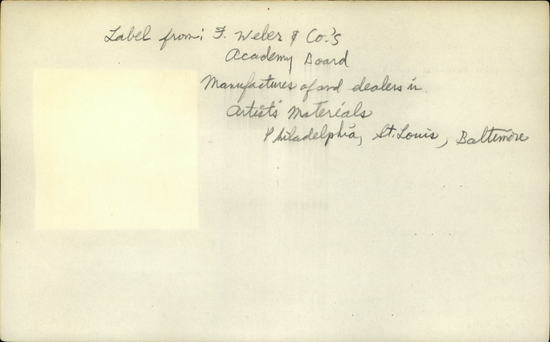 Label from: F. Weber & Co.'s
Academy Board
Manufactures of and dealers in
Artists' Materials
Philadelphia, St. Louis, Baltimore